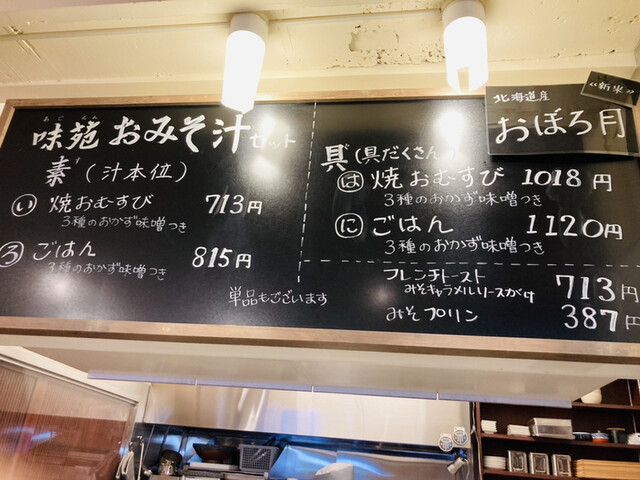 あじ えん
味苑 おみそ汁セット
素す (汁本位)
い 焼おむすび 713円
3種のおかず味噌つき
ろ ごはん 815円
3種のおかず味噌つき
単品もございます
具 (具だくさん)
は 焼おむすび 1018円
3種のおかず味噌つき
に ごはん 1120円
3種のおかず味噌つき
フレンチトースト 713円
みそキャラメルソースがけ
みそプリン 387円
北海道産
おぼろ月
"新米"